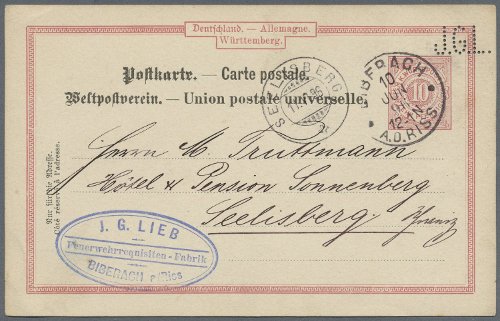 Deutschland. – Allemagne.
Württemberg.
JGL.
Postkarte. – Carte postale.
Weltpostverein. – Union postale universelle.
SEELISBERG
BIBERACH
10
JUN
12-1N
A.D.RISS
10
Nur für die Adresse.
Côté réservé à l'adresse.
Herrn M. Truttmann
Hôtel & Pension Sonnenberg
Seelisberg.
J. G. LIEB
Feuerwehrrequisiten-Fabrik
BIBERACH a/Riss